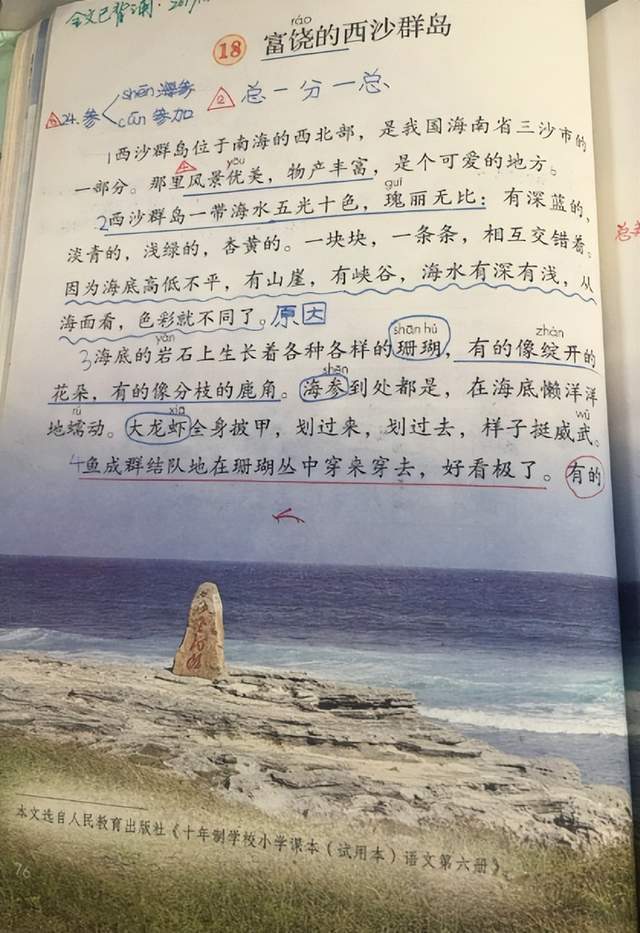 全文已背诵.
ráo
18 富饶的西沙群岛
shēn 海参
24.参
cān 参加
② 总一分一总
1西沙群岛位于南海的西北部,是我国海南省三沙市的
yōu
一部分。那里风景优美,物产丰富,是个可爱的地方。
guī
2西沙群岛一带海水五光十色,瑰丽无比:有深蓝的,
淡青的,浅绿的,杏黄的。一块块,一条条,相互交错着。
因为海底高低不平,有山崖,有峡谷,海水有深有浅,从
海面看,色彩就不同了。原因
yán shān hú zhàn
3海底的岩石上生长着各种各样的珊瑚,有的像绽开的
shēn
花朵,有的像分枝的鹿角。海参到处都是,在海底懒洋洋
rú xiā wǔ
地蠕动。大龙虾全身披甲,划过来,划过去,样子挺威武。
4鱼成群结队地在珊瑚丛中穿来穿去,好看极了。有的
本文选自人民教育出版社《十年制学校小学课本(试用本)语文第六册》。
76